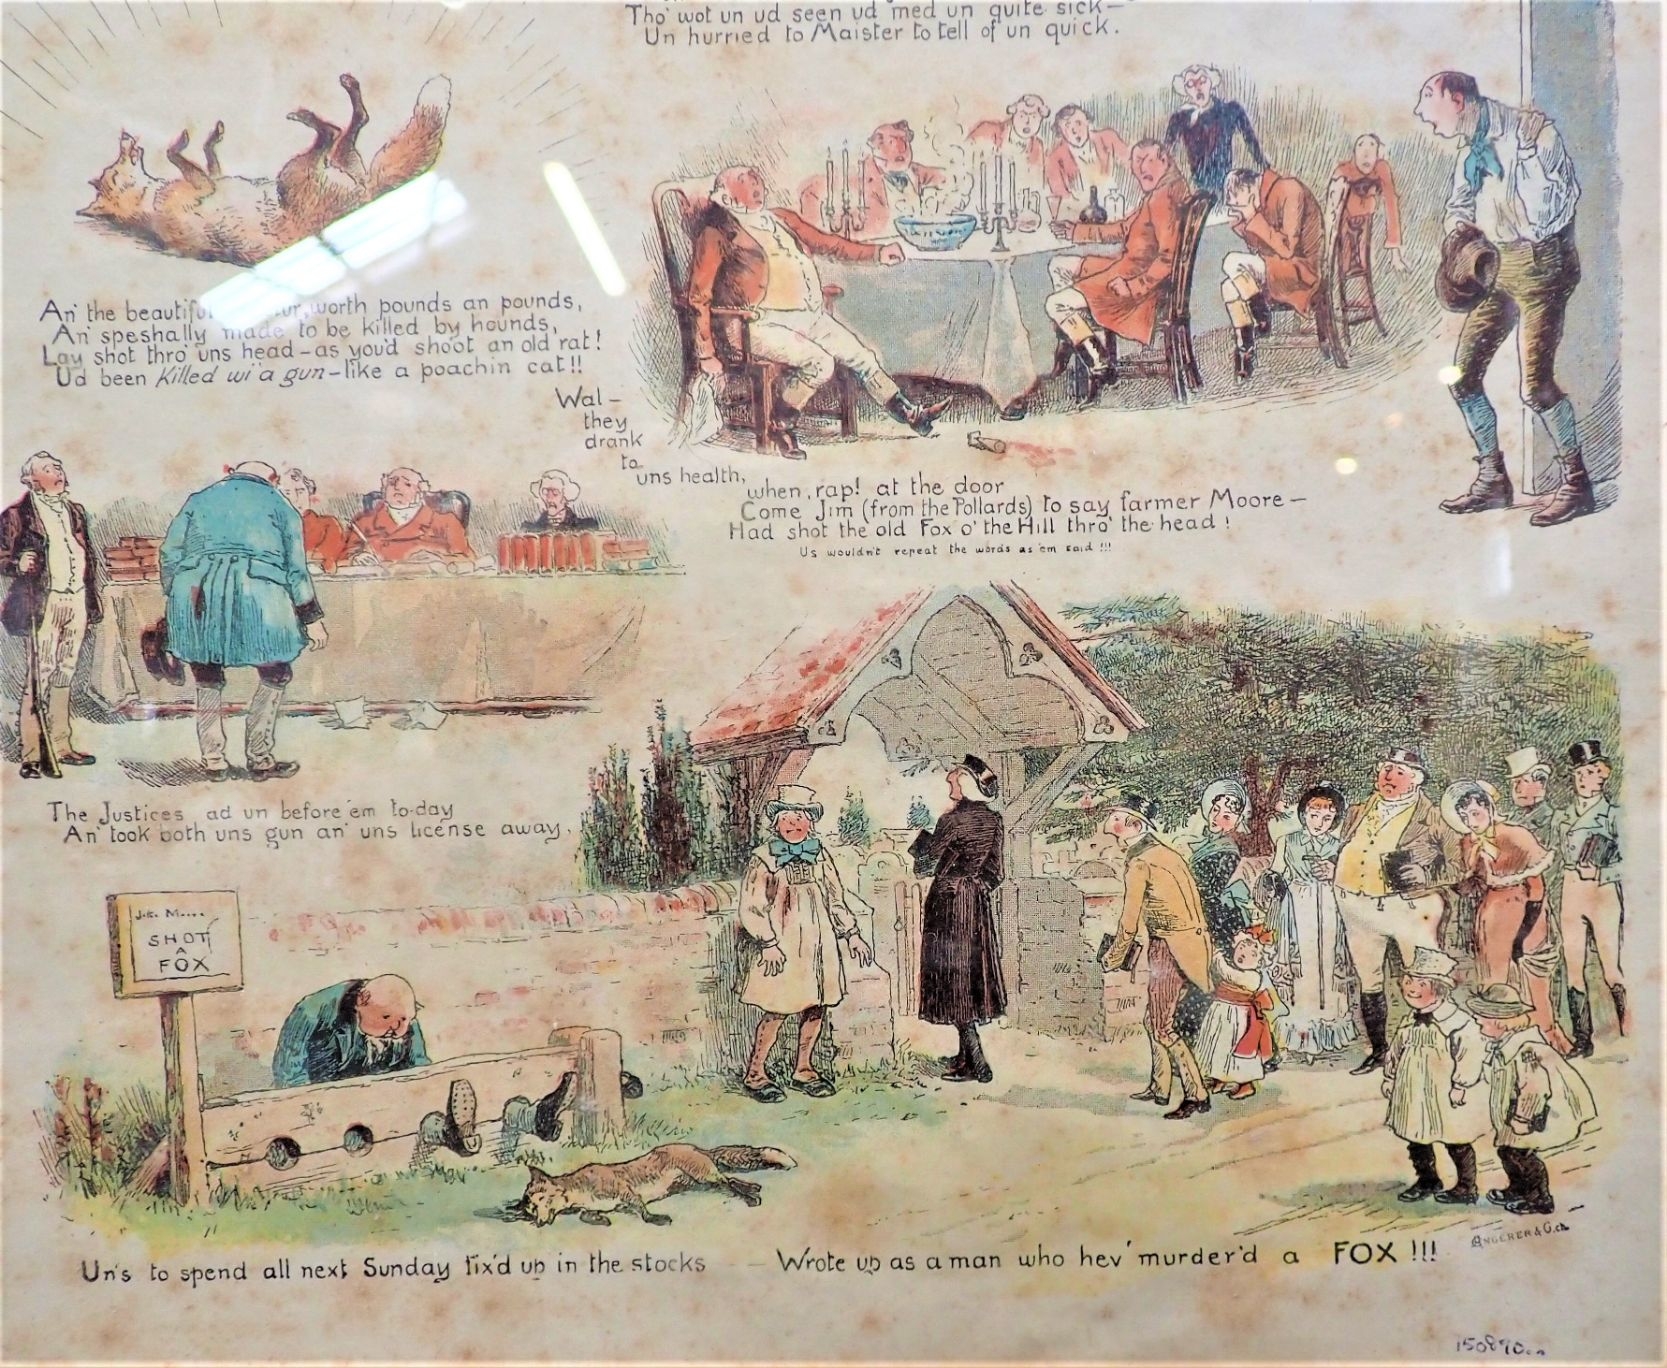 Tho' wot un ud seen ud med un quite sick—
Un hurried to Maister to tell of un quick.
An' the beautiful worth pounds an pounds,
An' speshally made to be killed by hounds,
Lay shot thro' uns head – as you'd shoot an old rat!
Ud been Killed wi' a gun – like a poachin cat!!
Wal –
they
drank
to
uns health,
when, rap! at the door
Come Jim (from the Pollards) to say farmer Moore –
Had shot the old Fox o' the Hill thro' the head!
Us wouldn't repeat the words as 'em said!!!
The Justices ad un before 'em to-day
An' took both uns gun an' uns license away.
Moore
SHOT
A
FOX
Un's to spend all next Sunday fix'd up in the stocks — Wrote up as a man who hev' murder'd a FOX!!!
ANGERER & G. ch